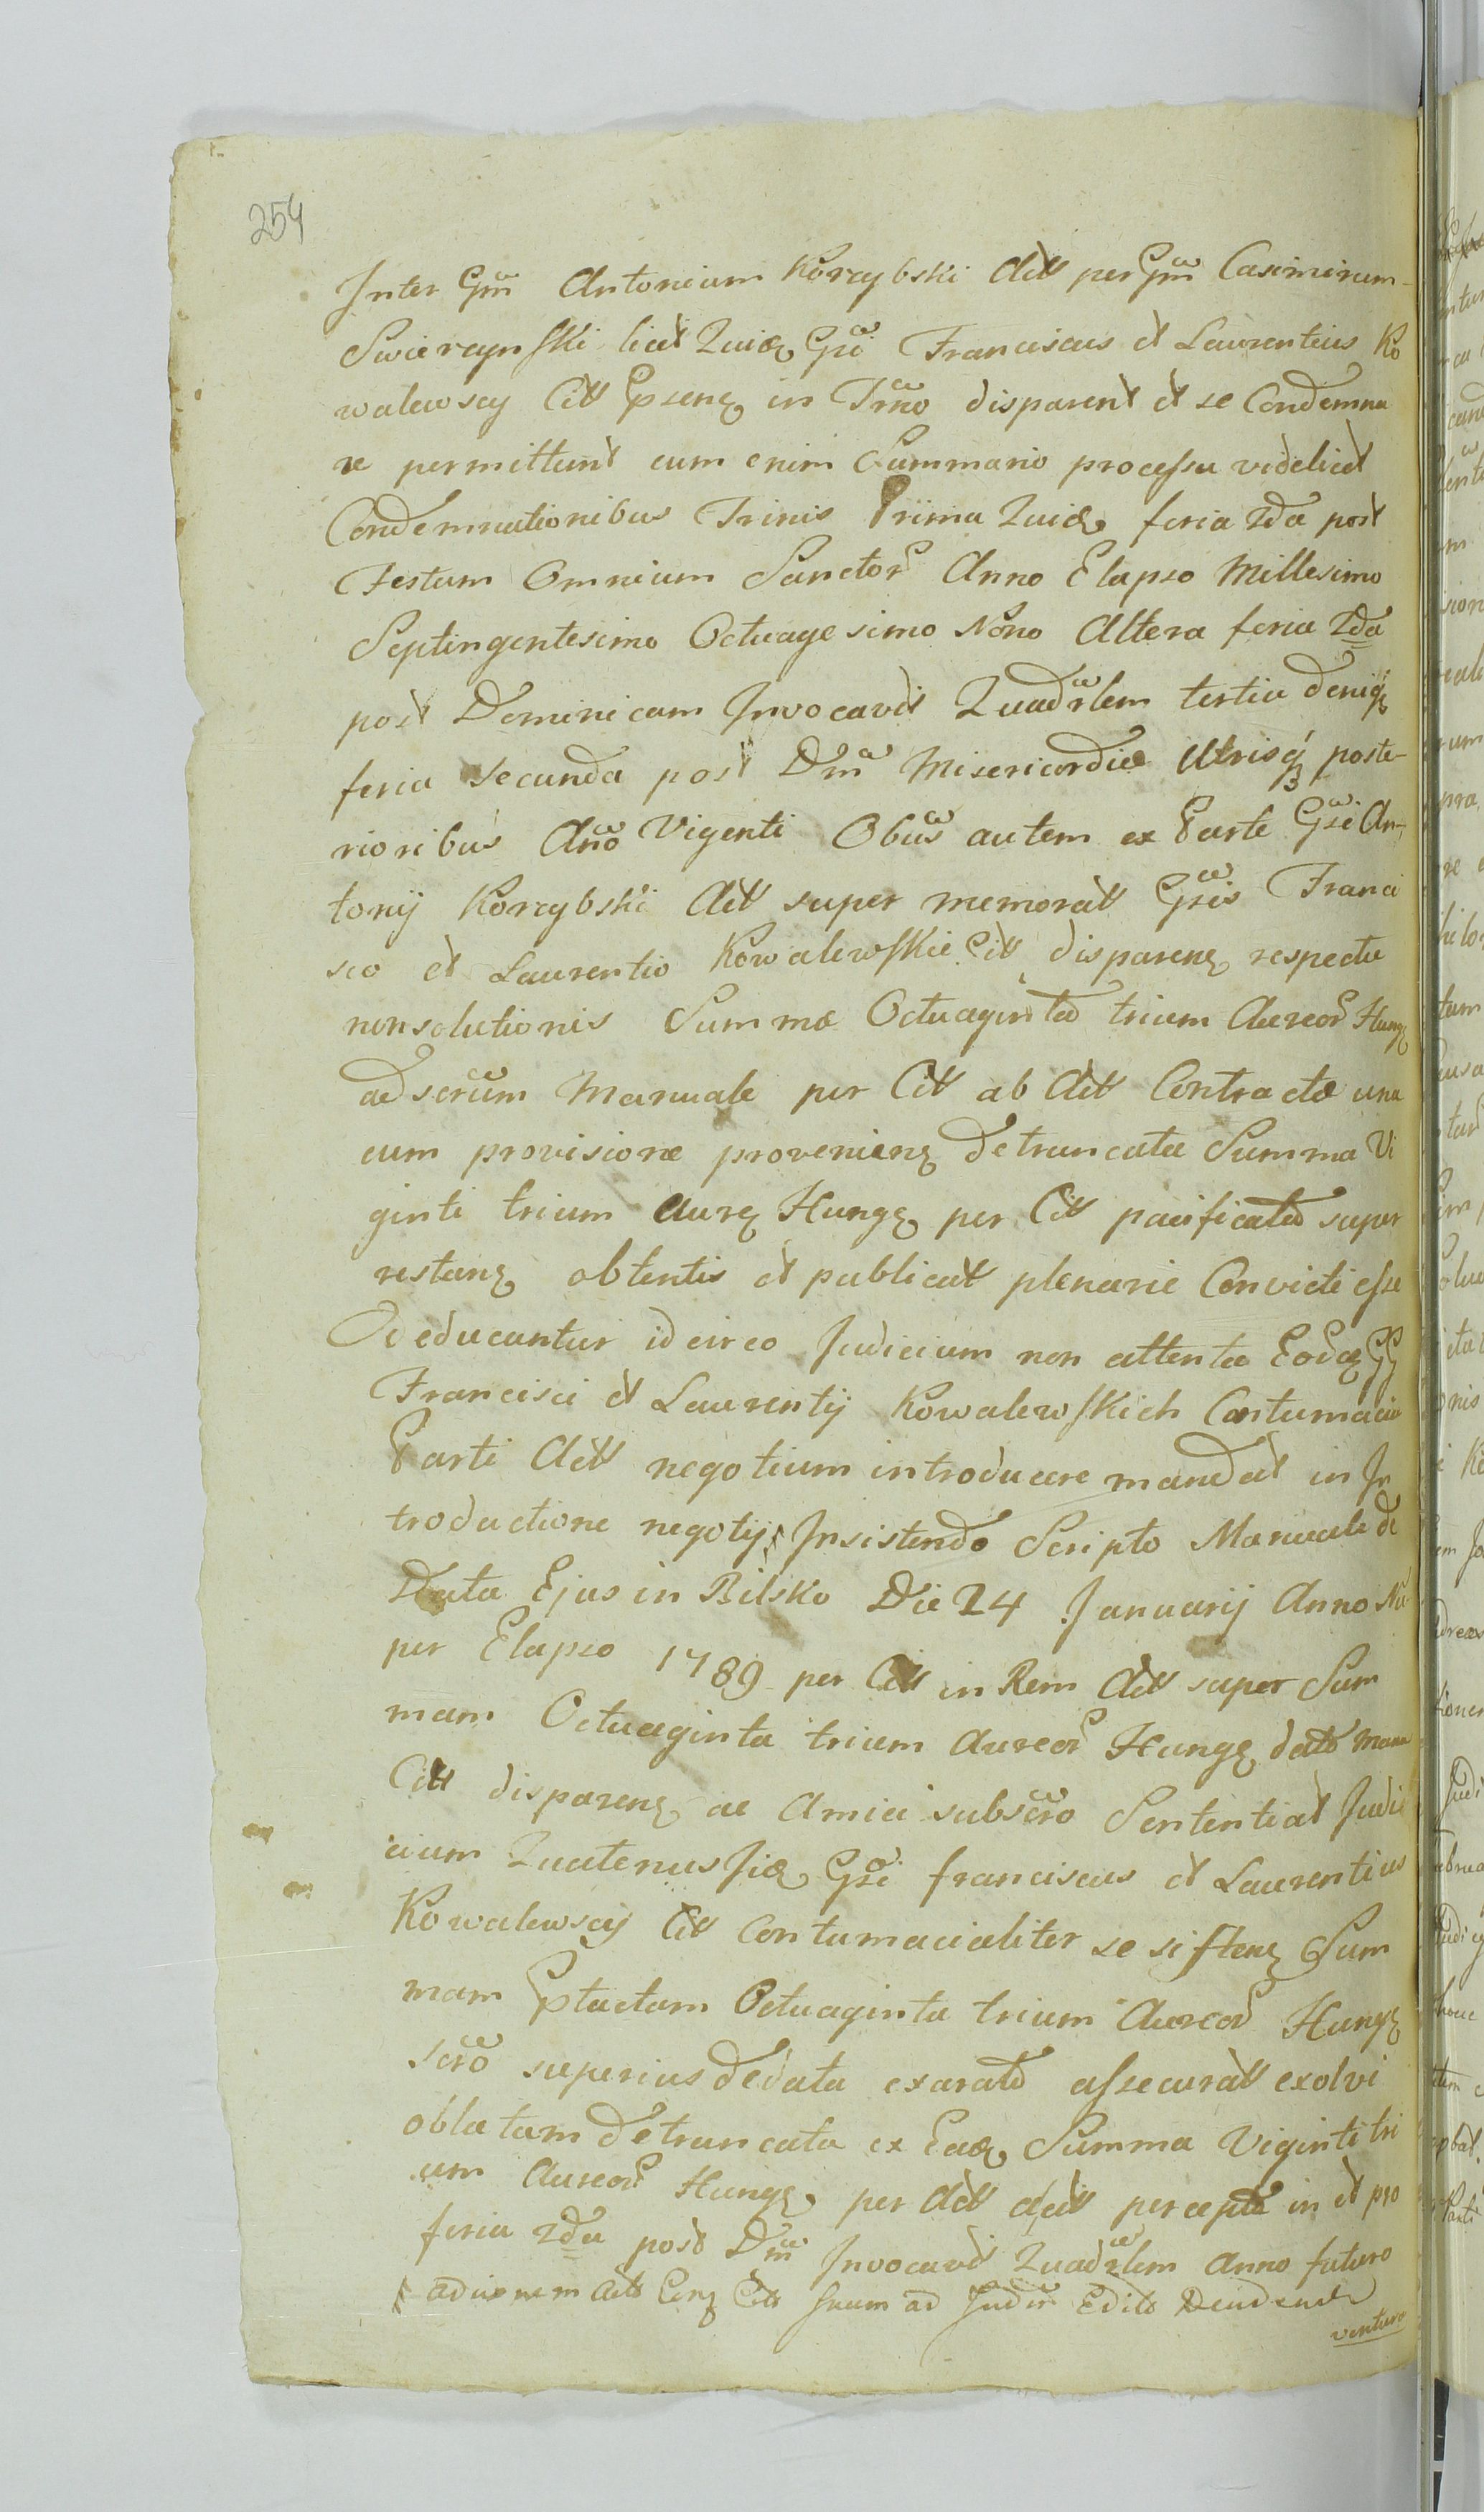 254
Inter Gm Antonium Korzybski Actt per Gm Casimirum
Swierczynski licet Quidꝫ Gsi Franciscus et Laurentius Ko
walewscy Citt Ppsenꝫ in Trno disparent et se Condemna
re permittunt cum enim Summario processu videlicet
Condemnationibus Trinis Priima Quidꝫ feria 2da post
Festum Omnium Sanctor Anno Elapso Millesimo
Septingentesimo Octuagesimo Nono Altera feria 2da
post Dominicam Invocavit Quadrlem tertia deniqꝫ
feria Secunda post Dm Misericordiæ Utrisqꝫ poste-
rioribus Ano Vigenti Obus autem ex Parte Gsi An-
tonij Korzybski Actt super memoratt Gsis Franci
sco et Laurentio Kowalewskie Citt disparenꝫ respectu
nonsolutionis Summæ Octuaginta trium Aureor Hungꝫ
ad scrum Manuale per Citt ab Actt Contractæ una
cum provisione provenienꝫ detruncata Summa Vi
ginti trium Aurꝫ Hungꝫ per Citt pacificata super
restanꝫ obtentis et publicatt plenarie Convicti esse
deducuntur idcirco Judicium non attenta Eodꝫ GG
Francisci et Laurentij Kowalewskich Contumacia
Parti Actt negotium introducere mandat in In
troductione negotij Insistendo Scripto Manuali de
Data Ejus in Bilsko Die 24 Januarij Anno Nu
per Elapso 1789 per Citt in Rem Actt super Sum
mam Octuaginta trium Aureor Hungꝫ dato manu
Citt disparenꝫ ac Amici subscro Sententiat Judi
cium Quatenus Jidꝫ Gsi franciscus et Laurentius
Kowalewscij Citt Contumacialiter se sistenꝫ Sum
mam Pptactam Octuaginta trium Aureor Hungꝫ
scro superius dedata exarato assecuratt exolvi
oblatam detruncata ex Eadꝫ Summa Viginti tri
um Aureor Hungꝫ per Actt percepta in et pro
feria 2da post Dm Invocavit Quadrlem Anno futuro
Actt Citt suum ad Judm
venturo